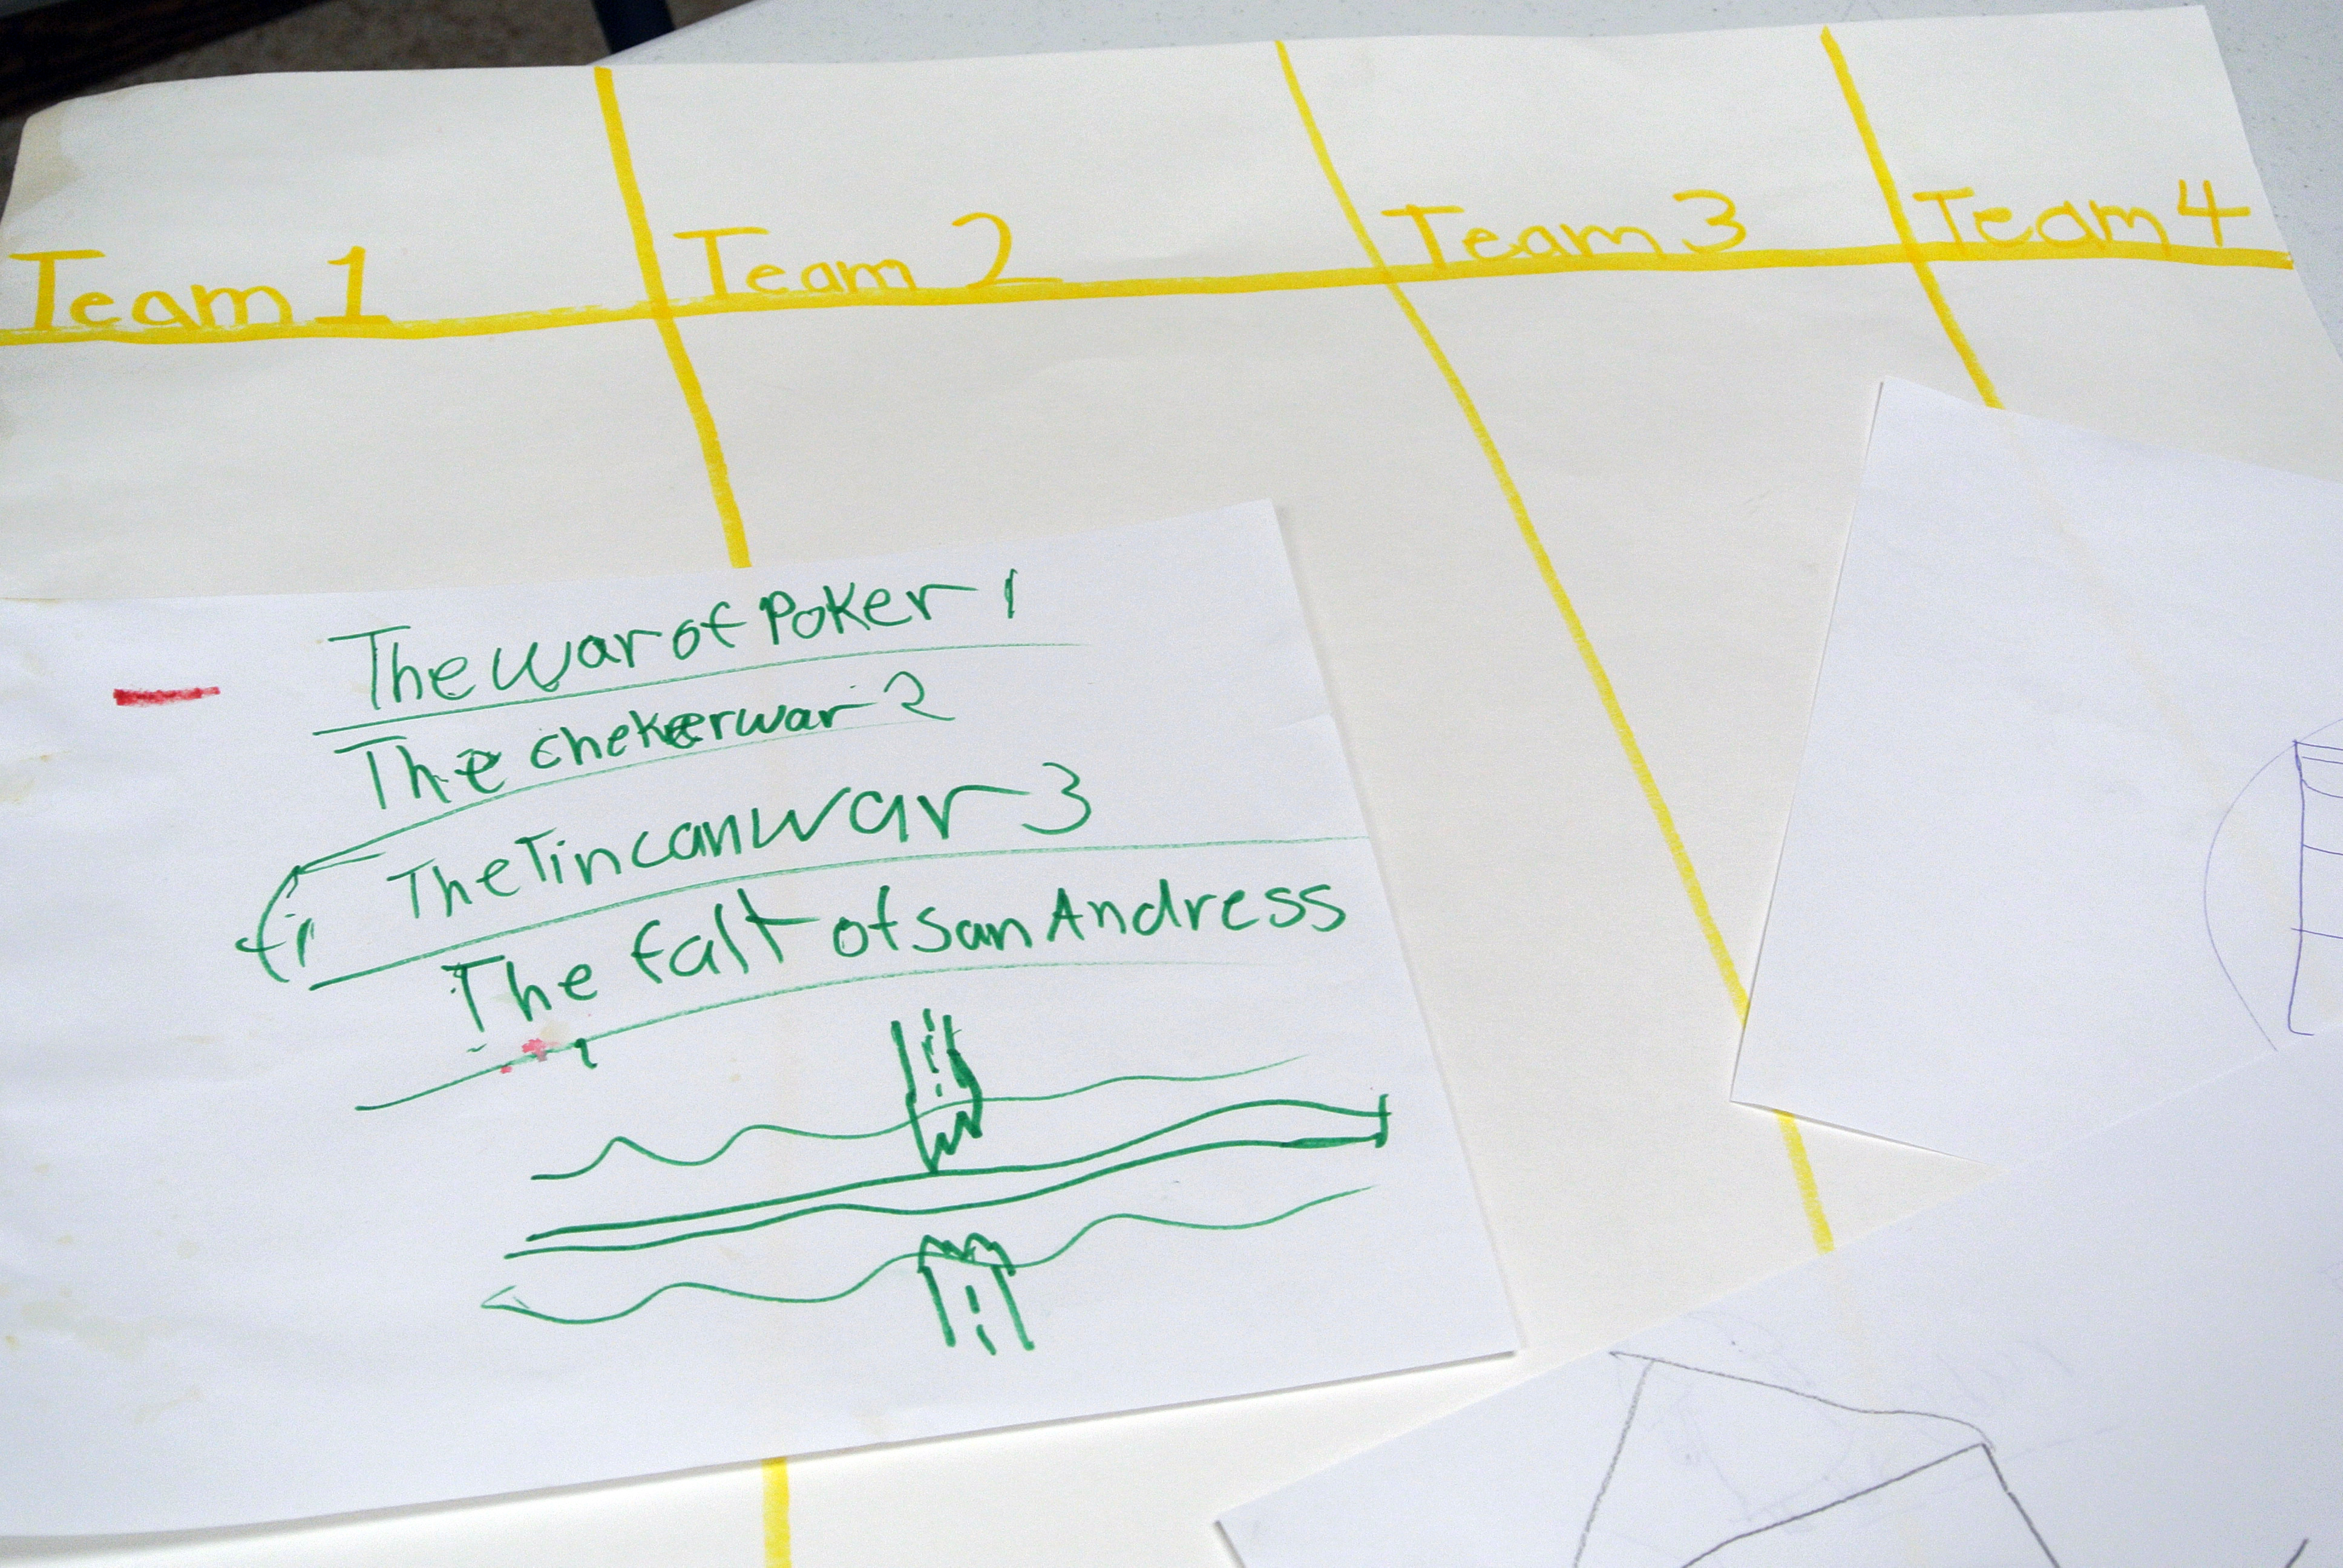 Team 1 Team 2 Team 3 Team 4
The war of Poker 1
The chekerwar 2
The Tin can war 3
The falt of San Andress